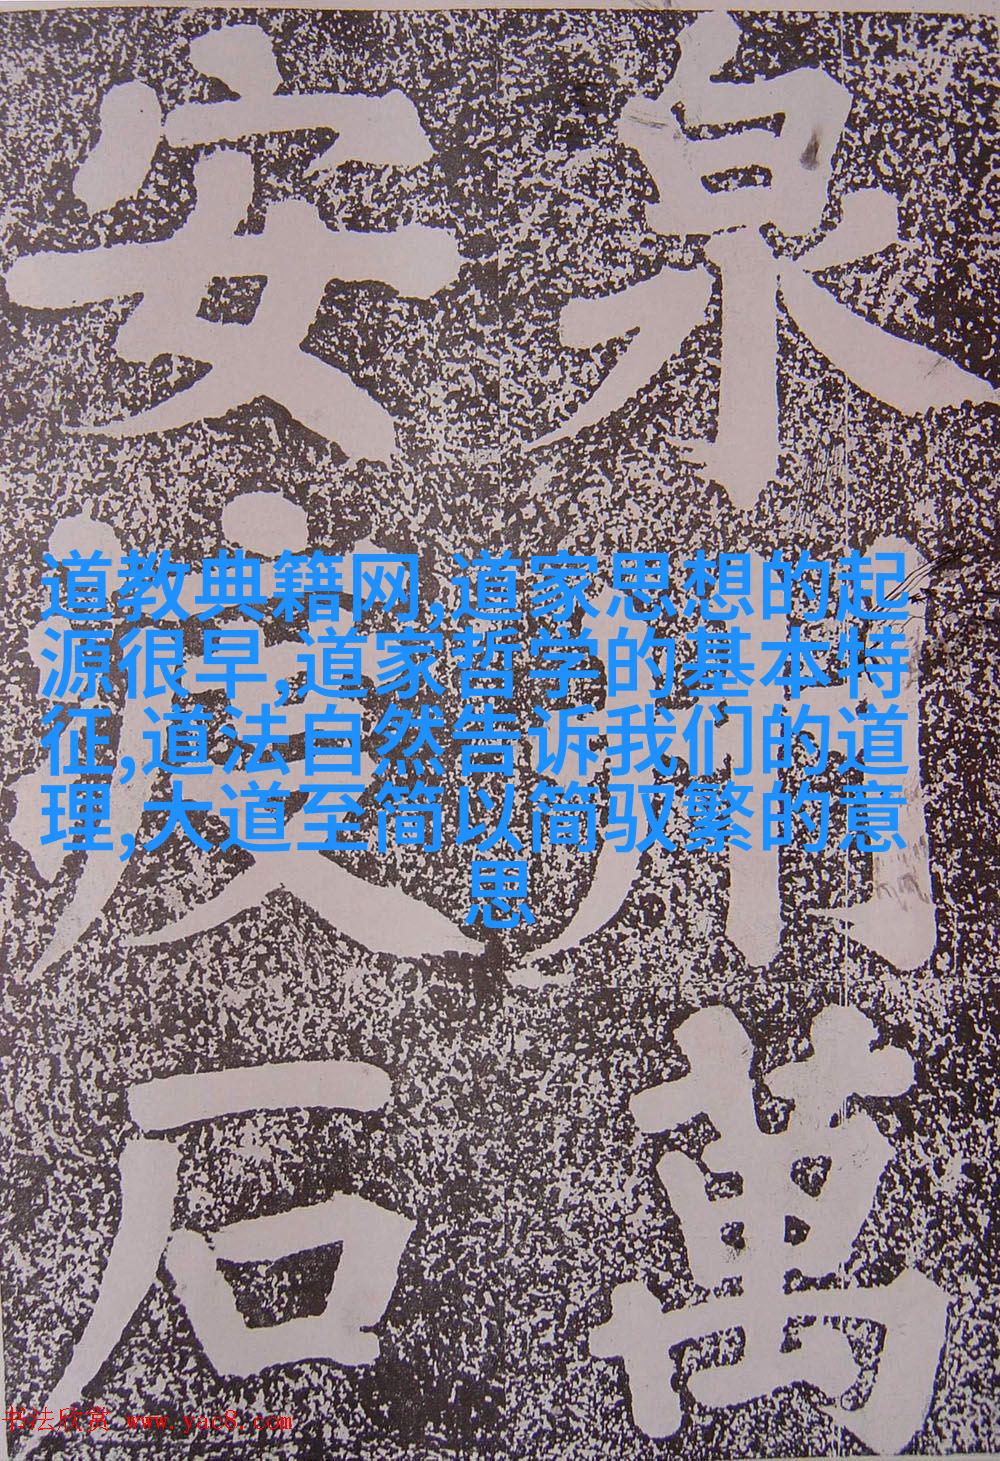 泉州萬
安渡石
道教典籍网,道家思想的起
源很早,道家哲学的基本特
征,道法自然告诉我们的道
理,大道至简以简驭繁的意
思
书法欣赏 www.yac8.com